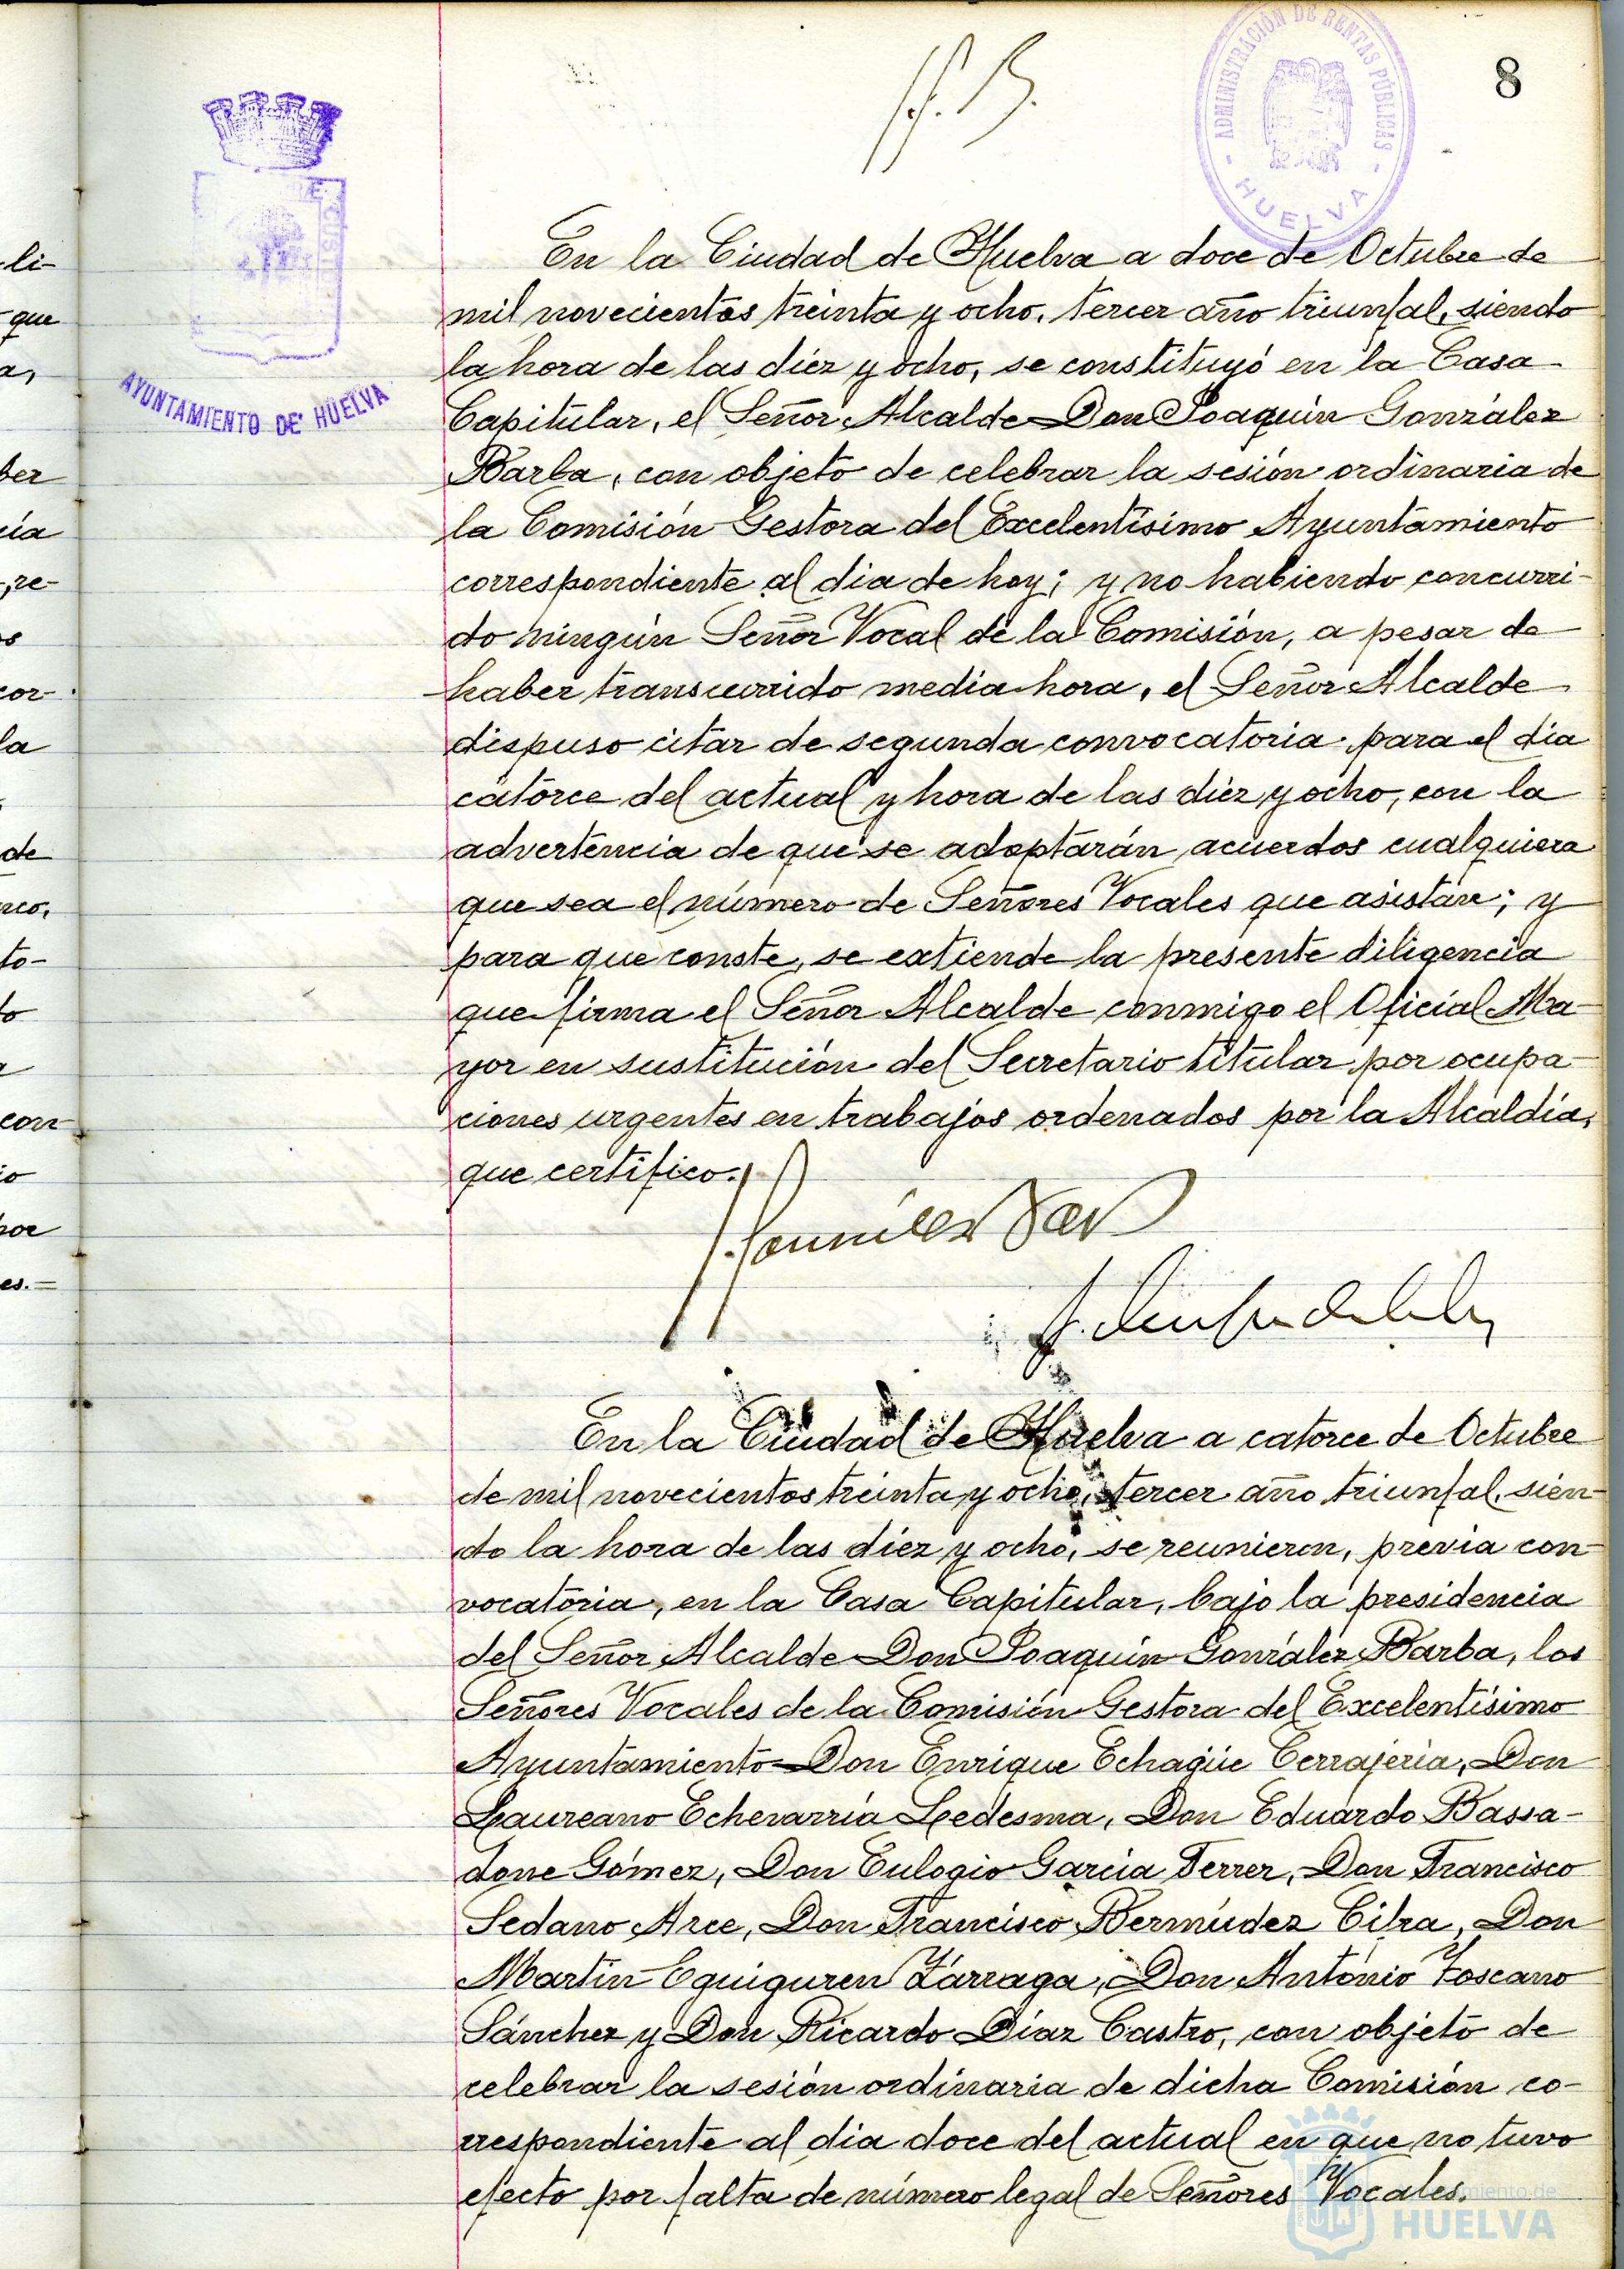 8
ADMINISTRACIÓN DE RENTAS PÚBLICAS
HUELVA
AYUNTAMIENTO DE HUELVA
En la Ciudad de Huelva a doce de Octubre de
mil novecientos treinta y ocho, tercer año triunfal, siendo
la hora de las diez y ocho, se constituyó en la Casa
Capitular, el Señor Alcalde Don Joaquín González
Barba, con objeto de celebrar la sesión ordinaria de
la Comisión Gestora del Excelentísimo Ayuntamiento
correspondiente al dia de hoy; y no habiendo concurri-
do ningún Señor Vocal de la Comisión, a pesar de
haber transcurrido media hora, el Señor Alcalde
dispuso citar de segunda convocatoria para el dia
catorce del actual y hora de las diez y ocho, con la
advertencia de que se adoptarán acuerdos cualquiera
que sea el número de Señores Vocales que asistan; y
para que conste, se extiende la presente diligencia
que firma el Señor Alcalde conmigo el Oficial Ma-
yor en sustitución del Secretario titular por ocupa-
ciones urgentes en trabajos ordenados por la Alcaldía,
que certifico.
En la Ciudad de Huelva a catorce de Octubre
de mil novecientos treinta y ocho, tercer año triunfal, sien-
do la hora de las diez y ocho, se reunieron, previa con-
vocatoria, en la Casa Capitular, bajo la presidencia
del Señor Alcalde Don Joaquín González Barba, los
Señores Vocales de la Comisión Gestora del Excelentísimo
Ayuntamiento Don Enrique Echagüe Cerrajería, Don
Laureano Echevarría Ledesma, Don Eduardo Bassa-
done Gómez, Don Eulogio García Ferrer, Don Francisco
Sedano Arce, Don Francisco Bermúdez Cilra, Don
Martín Eguiguren Zárraga, Don Antonio Toscano
Sánchez y Don Ricardo Díaz Castro, con objeto de
celebrar la sesión ordinaria de dicha Comisión co-
rrespondiente al dia doce del actual en que no tuvo
efecto por falta de número legal de Señores Vocales.
HUELVA
li-
que
a,
ber
cía
re-
cor-
la
de
to-
con-
es.=